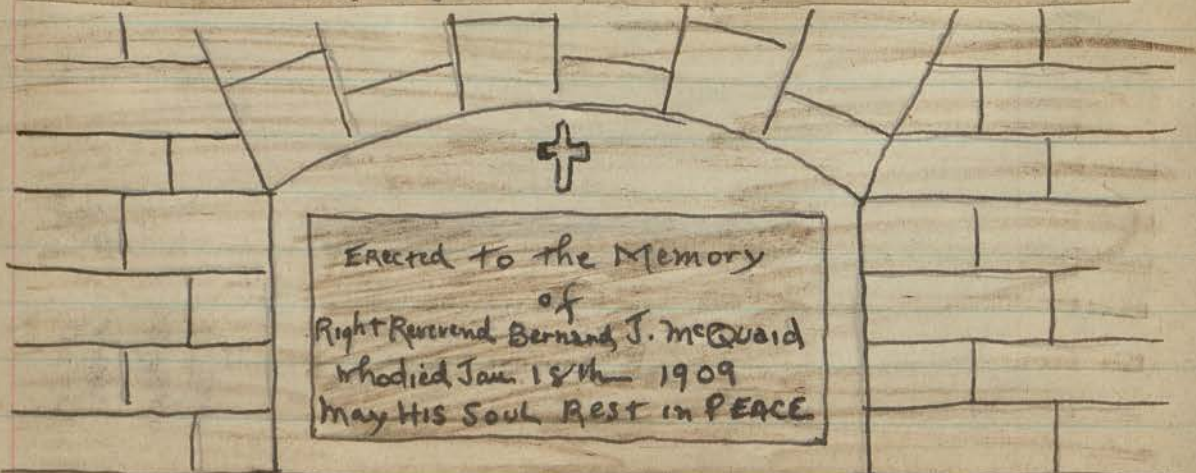 Erected to the Memory
of
Right Reverend Bernard J. McQuaid
who died Jan 18th 1909
May His Soul Rest in PEACE